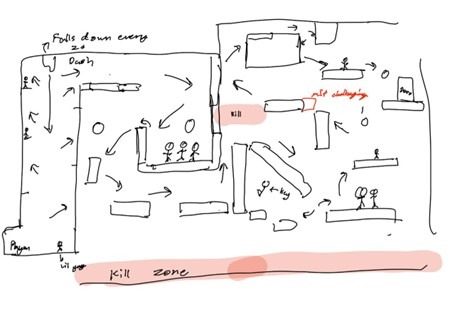 Falls down every
20
Dash
Kill
most challenging
Door
← key
Player
lil guy
Kill zone